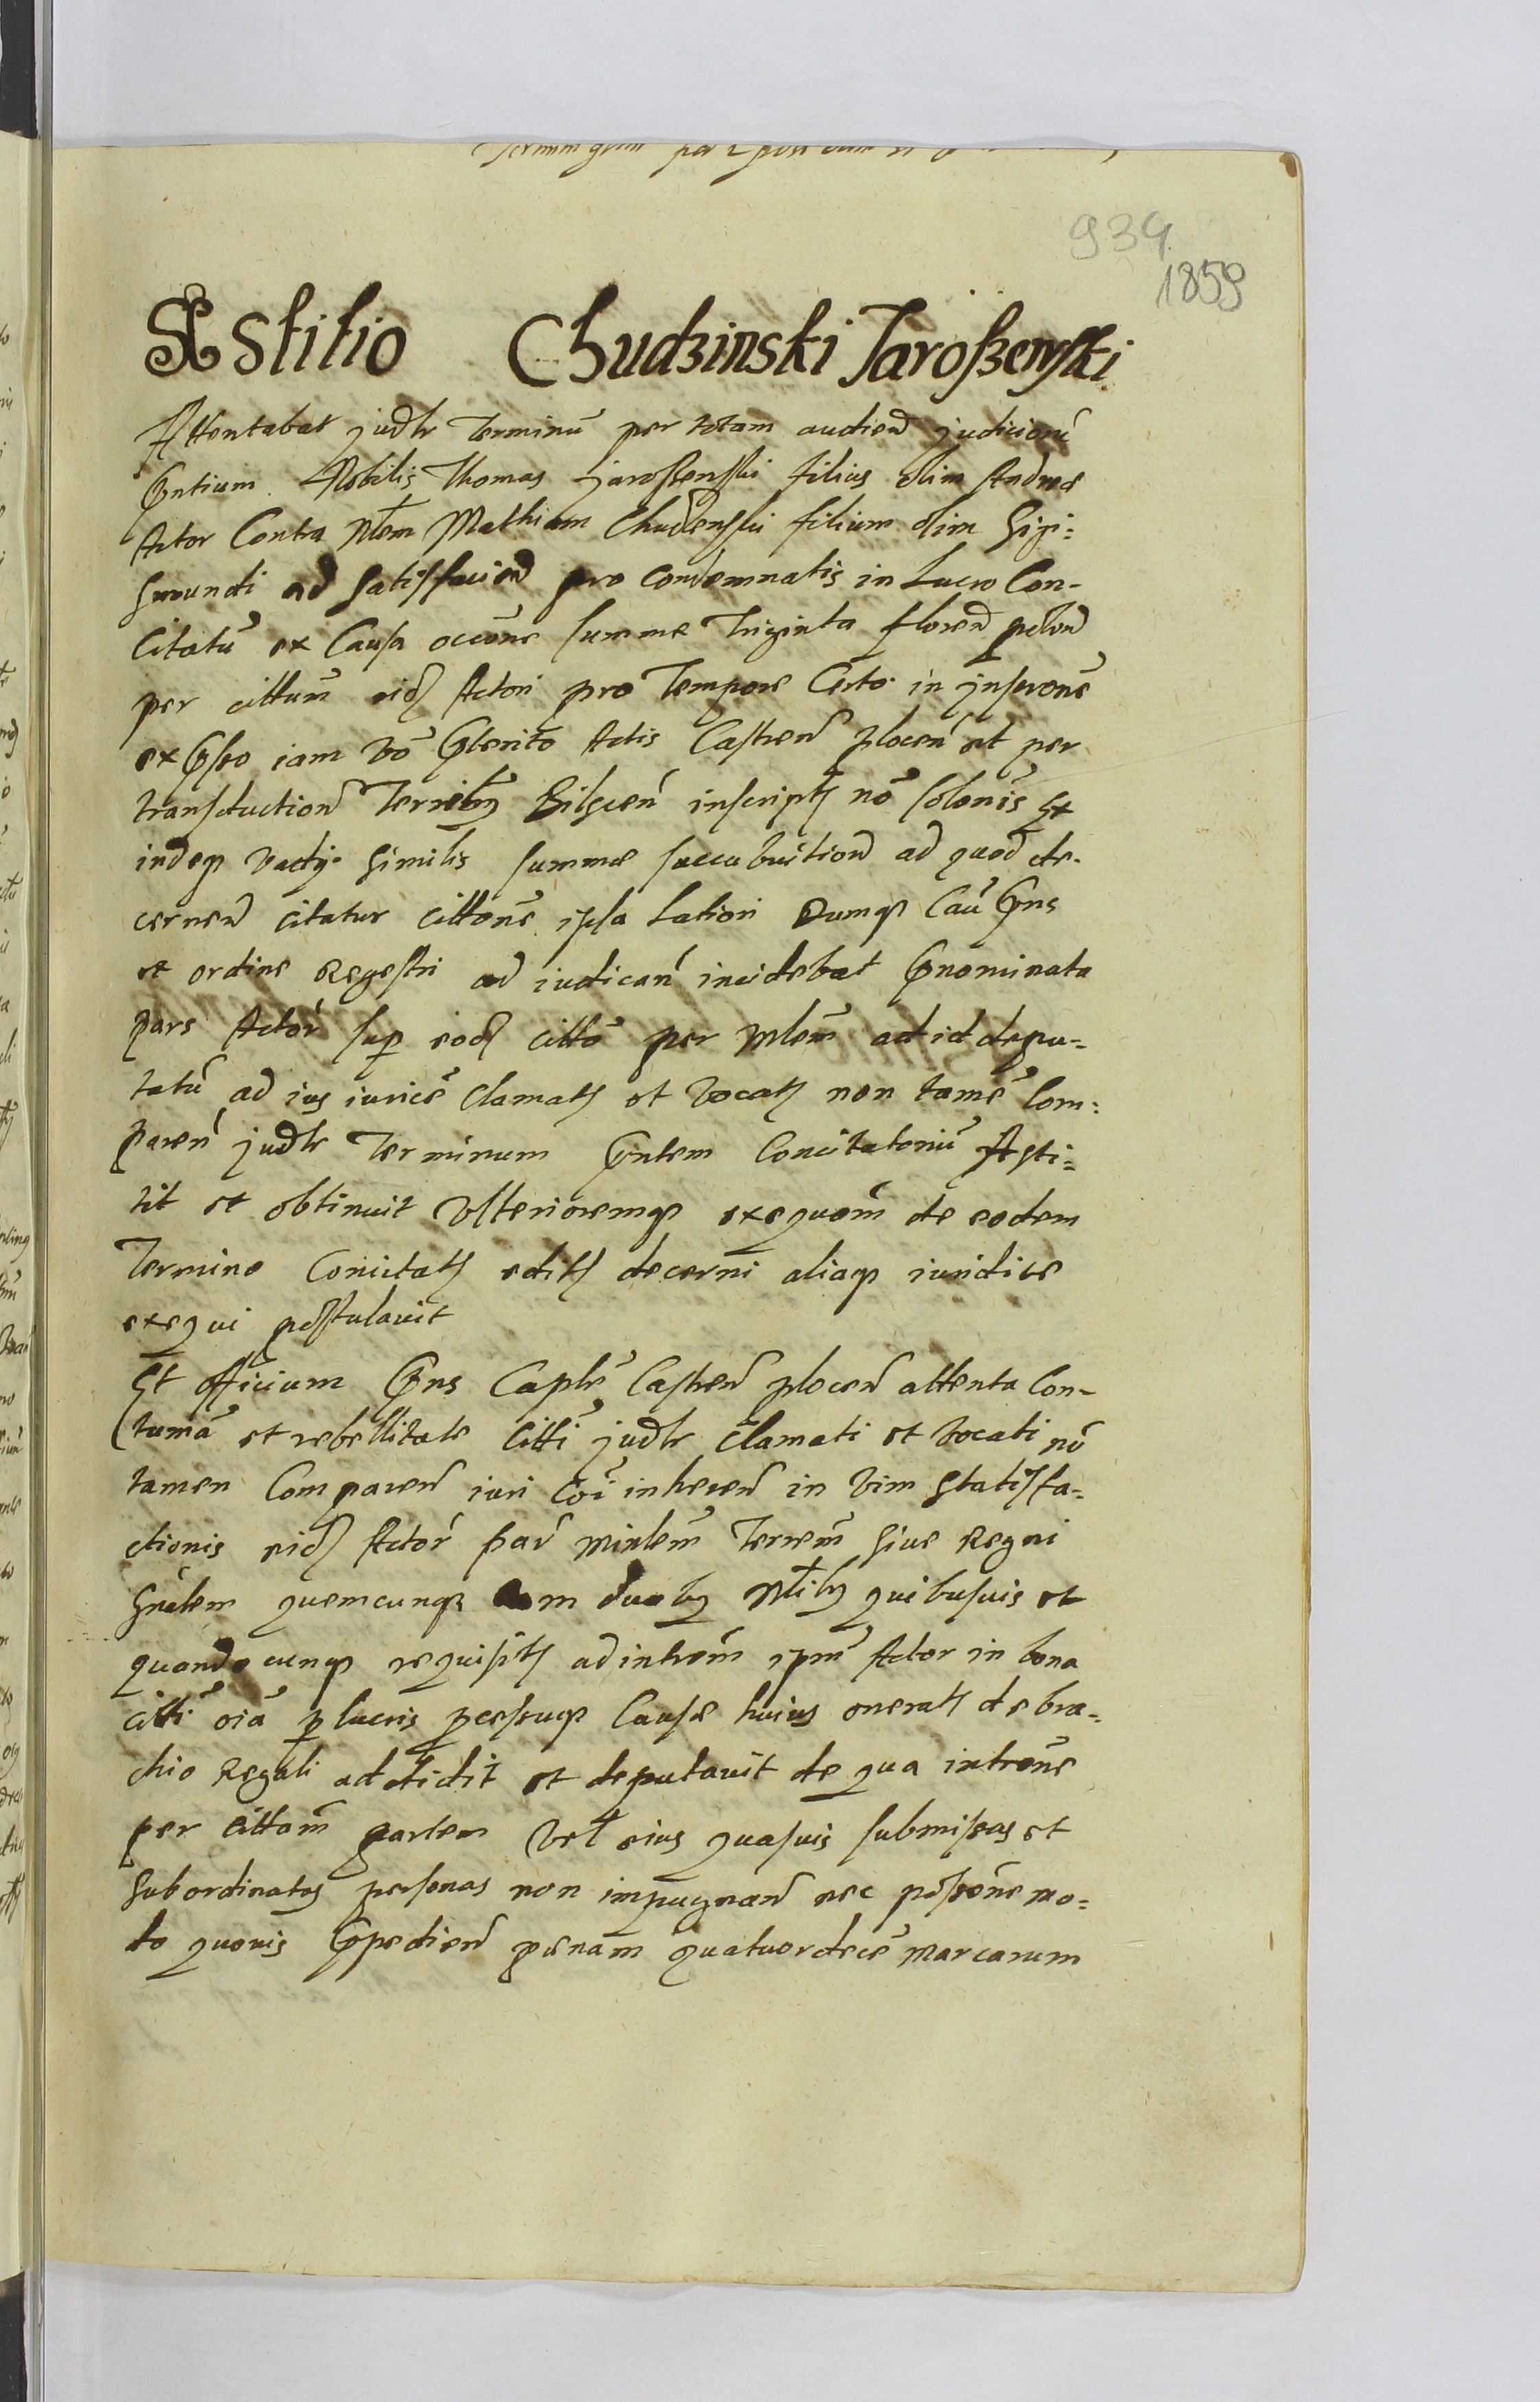 934
1859
Astitio Chudzinski Jaroßewski
Attentabat judtr Terminū per totam audien judiciorū
pntium Nobilis Thomas Jaroßewski filius olim Andreæ
Actor Contra Nlem Mathiam Chudzenski filium olim Sigi=
smundi ad satisfaciend pro condemnatis in Lucro Con-
Citatū ex Causa occōne summæ Triginta floren polon
per cittum eid Actori pro Tempore Certo in inscrōne
expsso iam vō pterito Actis Castren plocen et per
transductionē Terrestriby Bilscen inscripts nō solōnis Et
indeq vadij similis summæ succubuition ad quod de-
cernen citatur cittōne ipsa Latiori Dumq Cau pns
et ordine Regestri ad iudican incidebat pnominata
pars Actor sup eod citto per Mlem ad id depu-
tatū ad ius iurice clamats et vocats non tamē Com=
paren judtr Terminum pntem Concitatoriū Asti=
tit et obtinuit Ulterioremq exequom de eodem
Termino Concitats edits decerni aliaq iuridice
exequi postulavit
Et officium pns Capłe Castren plocen attenta Con-
tuma et rebellitate Citti judtr clamati et vocati nō
tamen Comparen iuri Cōi inheren in vim Satisfa-
ctionis eid Actor par Minlem Terrem sive Regni
Gnalem quemcunq cum duoby Nliby quibusvis et
quandocunq requisits ad introm ipm Actor in bona
citti oia p lucris pcessuq Causæ huius onerats de bra-
chio Regali addidit et deputavit de qua introne
per Cittam partem vel eius quasvis submissas et
subordinatas personas non impugnan nec possōne mo-
do quovis Expedien pænam quatuordecē marcarum